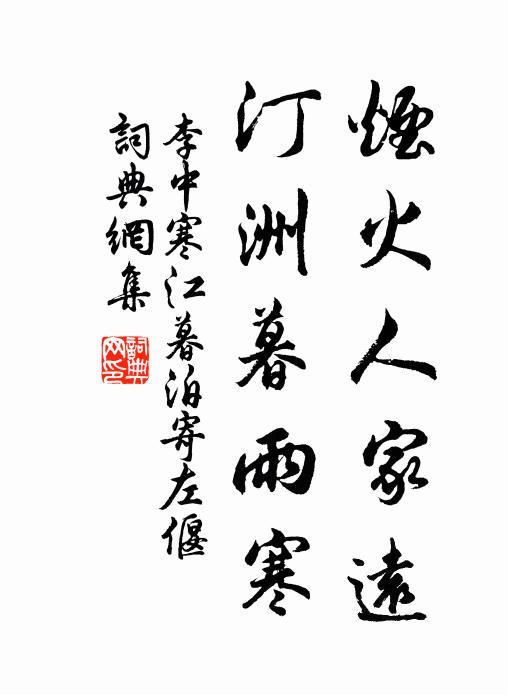 煙火人家遠
汀洲暮雨寒
李中寒江暮泊寄左偃
詞典網集
詞典
网印